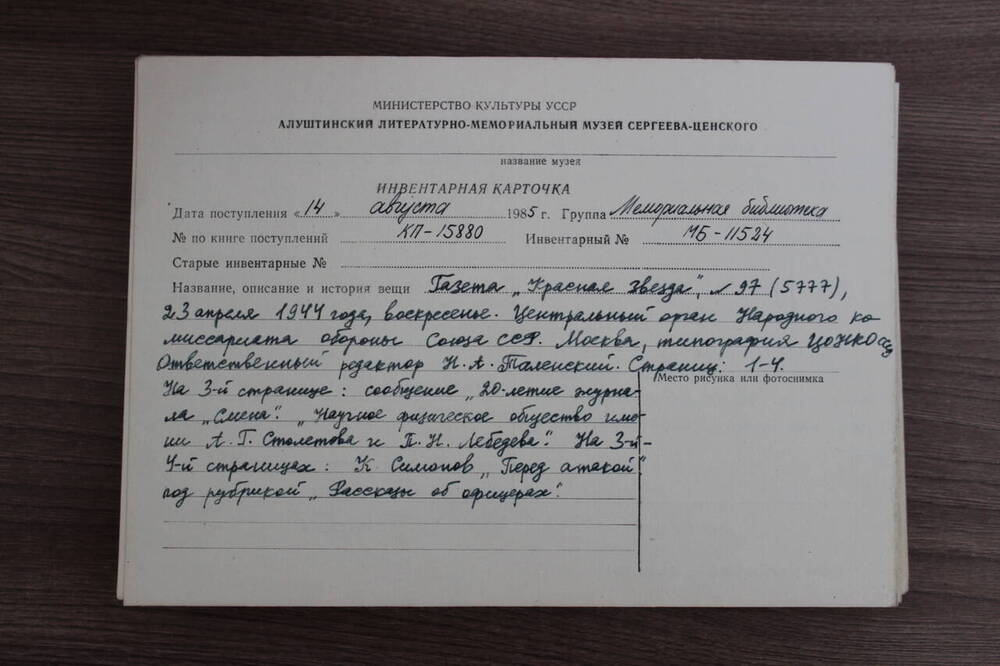 МИНИСТЕРСТВО КУЛЬТУРЫ УССР
АЛУШТИНСКИЙ ЛИТЕРАТУРНО-МЕМОРИАЛЬНЫЙ МУЗЕЙ СЕРГЕЕВА-ЦЕНСКОГО
название музея
ИНВЕНТАРНАЯ КАРТОЧКА
Дата поступления «14» августа 1985 г. Группа Мемориальная библиотека
№ по книге поступлений КП-15880 Инвентарный № МБ-11524
Старые инвентарные №
Название, описание и история вещи Газета „Красная звезда", № 97 (5777),
23 апреля 1944 года, воскресенье. Центральный орган Народного ко
миссариата обороны Союза ССР. Москва, типография
Ответственный редактор Н. А. Таленский. Страниц: 1-4.
Место рисунка или фотоснимка
На 3-й странице: сообщение „20-летие журна
ла „Смена". „Научное физическое общество име
ни А. Г. Столетова и П. Н. Лебедева". На 3-й-
4-й страницах: К. Симонов „Перед атакой"
под рубрикой „Рассказы об офицерах".